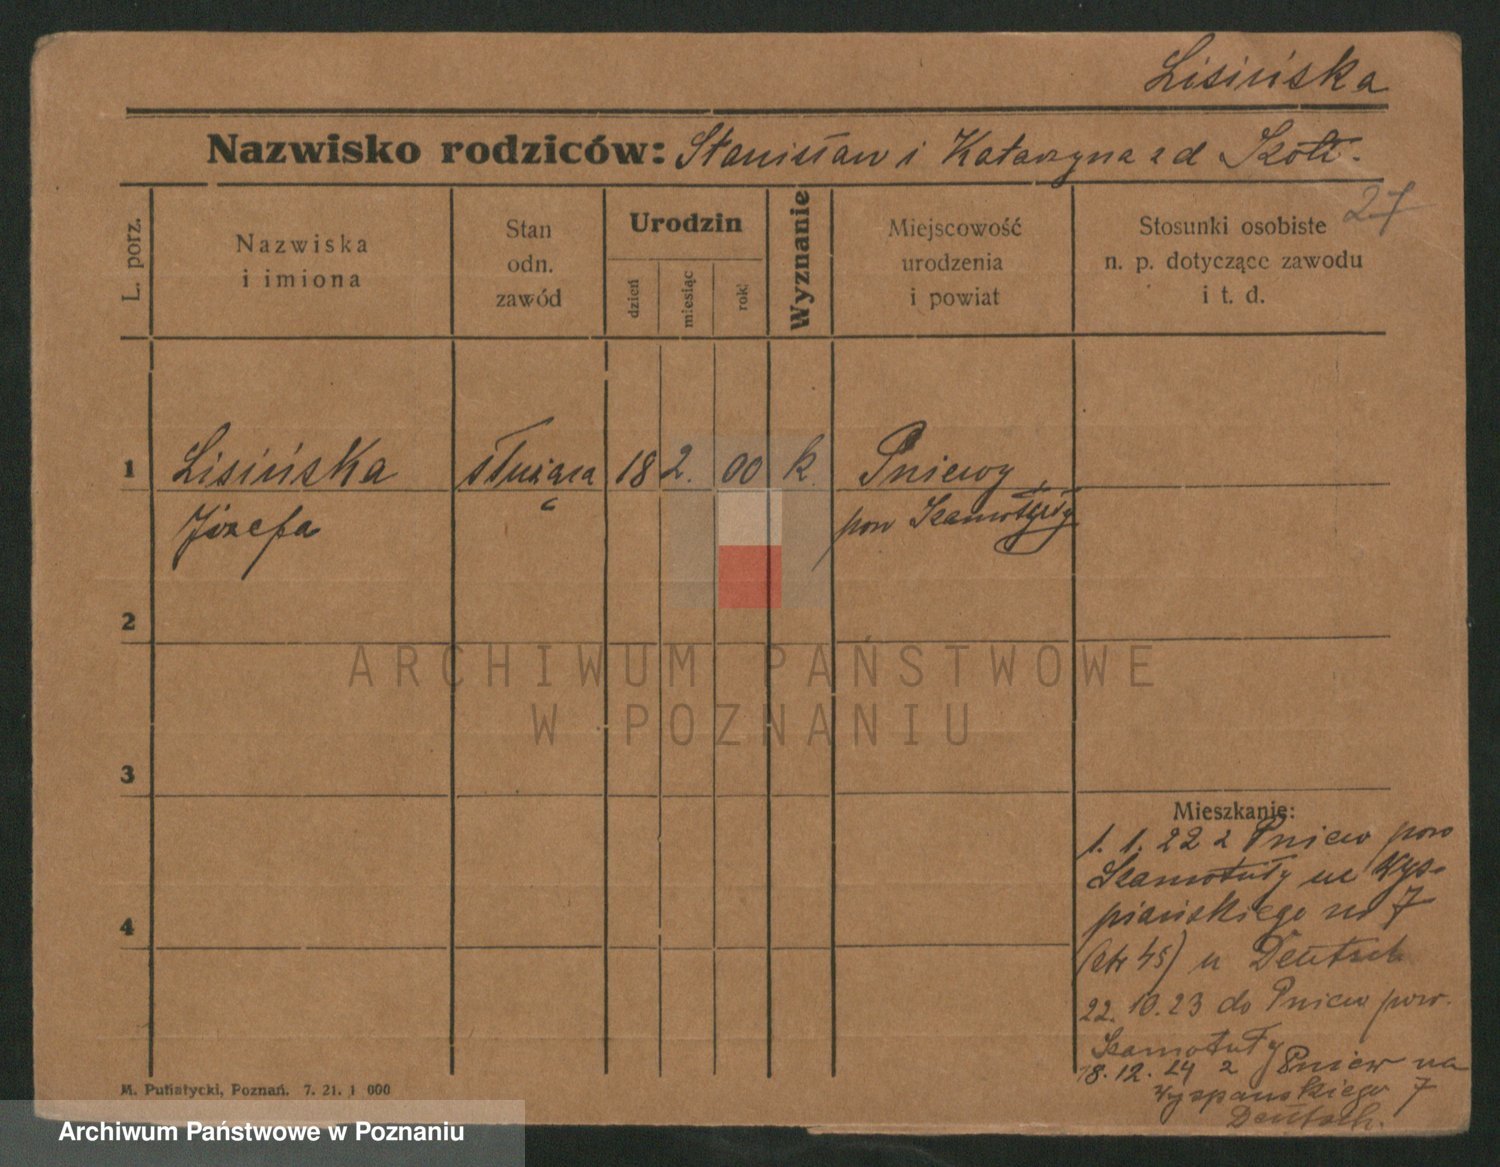 Lisińska
Nazwisko rodziców: Stanisław i Katarzyna z d
27
L. porz.
Nazwiska
i imiona
Stan
odn.
zawód
Urodzin
dzień
miesiąc
rok
Wyznanie
Miejscowość
urodzenia
i powiat
Stosunki osobiste
n. p. dotyczące zawodu
i t. d.
1 Lisińska służąca 18 2. 00 k. Pniewy
Józefa pow Szamotuły
2
3
4
Mieszkanie:
1. 1. 22 z Pniew pow
Szamotuły na Wys-
piańskiego nr 7
u Deutsch
22. 10. 23 do Pniew pow.
Szamotuły
18. 12. 24 z Pniew na
Wyspańskiego 7
Deutsch.
M. Putiatycki, Poznań. 7. 21. 1 000
ARCHIWUM PAŃSTWOWE
W POZNANIU
Archiwum Państwowe w Poznaniu